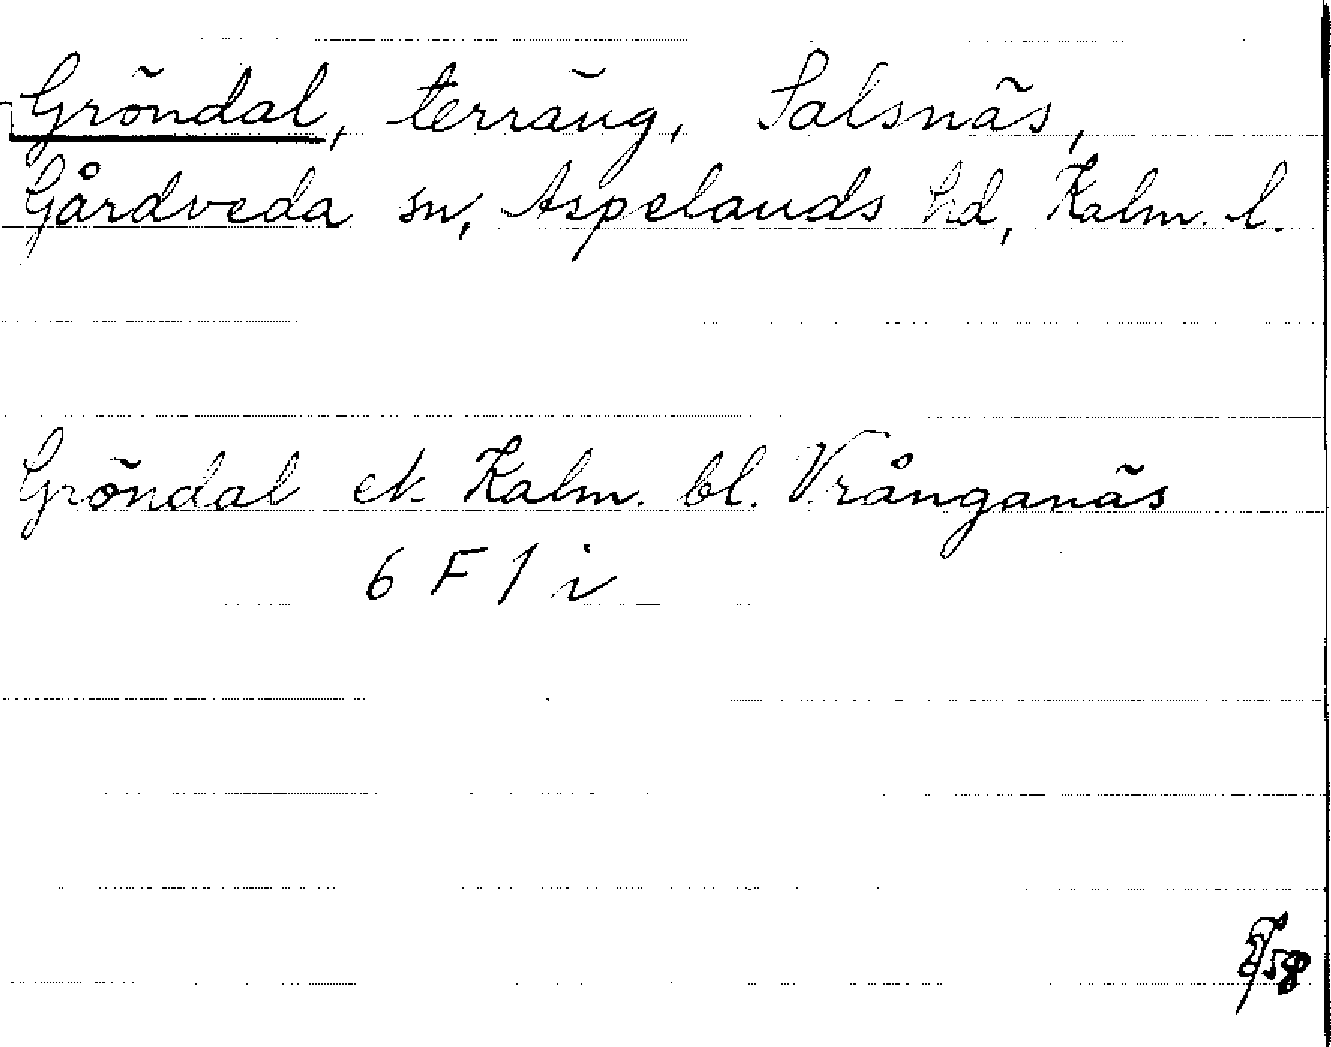 Gröndal, terräng, Salsnäs,
Gårdveda sn, Aspelands hd, Kalm. l.
Gröndal ek Kalm. bl. Vrånganäs
6 F 1 i
58